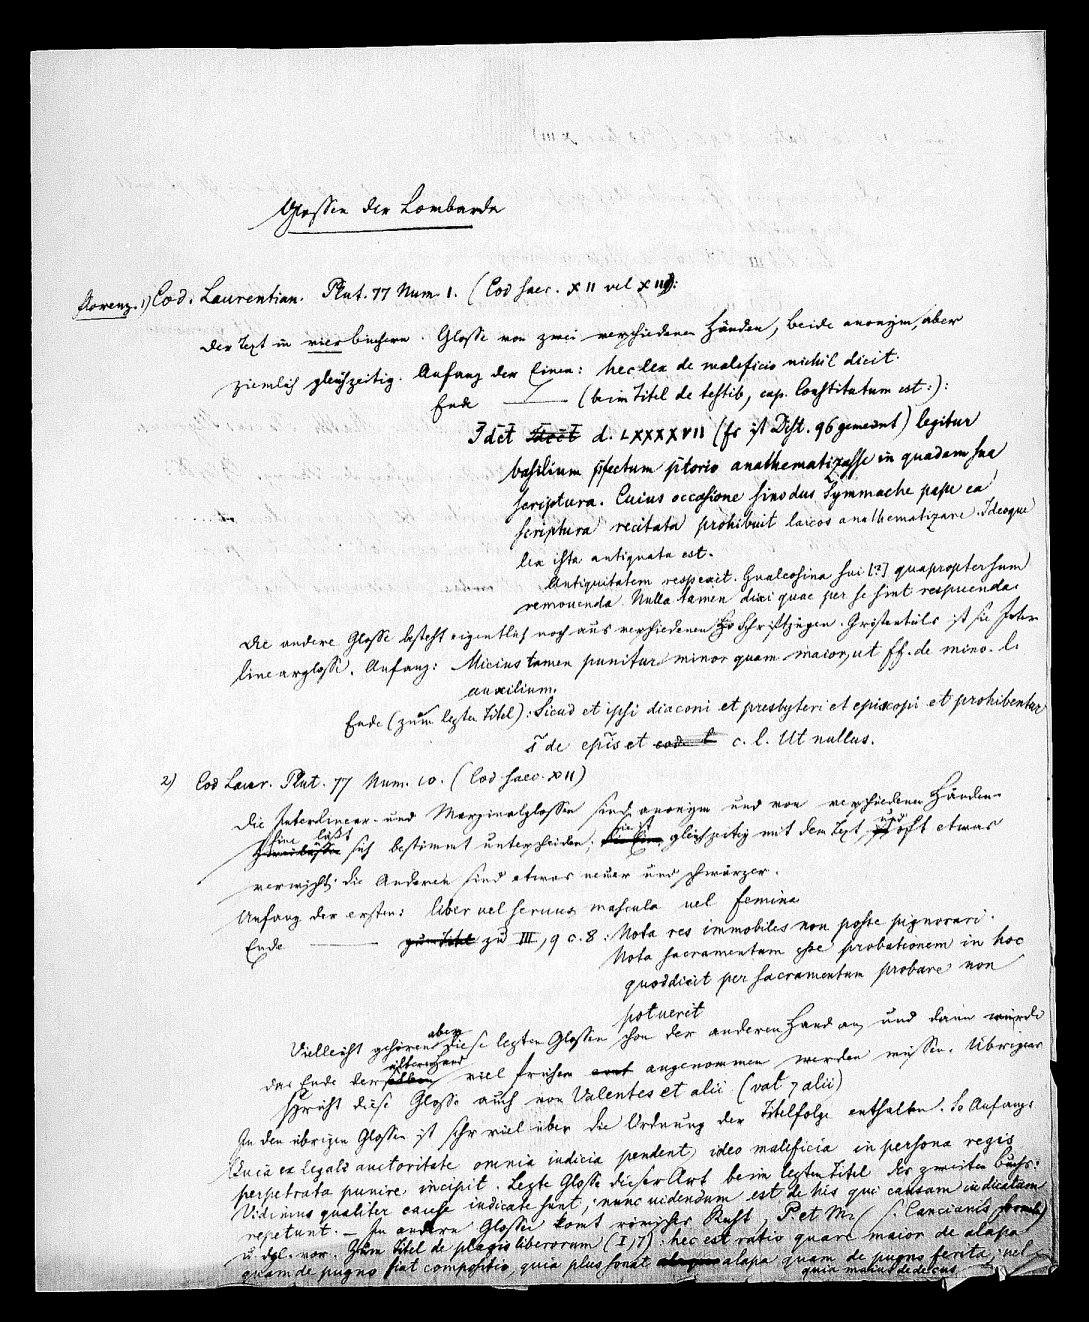 Glossen der Lombarda
Florenz. 1) Cod. Laurentian. Plut. 77 Num. 1. (Cod saec. XII vel XIII):
Der Text in vier büchern. Glosse von zwei verschiedenen Händen, beide anonym, aber
ziemlich gleichzeitig. Anfang der Einen: hec lex de maleficio nichil dicit.
Ende (beim Titel de testib, cap. Constitutum est:):
Idēt d. LXXXXVII (es ist Dist. 96 gemeint) legitur
basilium p̄fectum p̄torio anathematizasse in quadam sua
scriptura. Cuius occasione sinodus Symmache pape ea
scriptura recitata prohibuit laicos anathematizare. Ideoque
lex ista antiquata est.
Antiquitatem respexit. Gualcosina sui [?] quapropter sum
removenda. Nulla tamen dixi quae per se sint respuenda.
Die andere Glosse besteht eigentlich noch aus verschiedenen Schriftzügen. Grösstentheils ist sie Inter-
linearglosse. Anfang: Micius tamen punitur minor quam maior, ut ff. de mino. l.
auxilium.
Ende (zum lezten Titel): Sicud et ipsi diaconi et presbyteri et episcopi et prohibentur
s̄ de ep̄is et c. l. Ut nullus.
2) Cod Laur. Plut. 77 Num. 10. (Cod saec. XII)
Die Interlinear- und Marginalglossen sind anonym und von verschiedenen Händen.
Eine läßt sich bestimmt unterscheiden; sie ist gleichzeitig mit dem Text, und oft etwas
verwischt; die Anderen sind etwas neuer und schwärzer.
Anfang der ersten: liber vel servus mascula vel femina
Ende zu III, 9 c. 8: Nota res immobiles non posse pignorari.
Nota sacramentum esse probationem in hoc
quod dicit per sacramentum probare non
potuerit
Vielleicht gehören aber diese lezten Glossen schon der anderen Hand an, und dann würde
das Ende der älteren Hand viel früher angenommen werden müssen. Übrigens
spricht diese Glosse auch von Valentes et alii (val 7 alii)
In den übrigen Glossen ist sehr viel über die Ordnung der Titelfolge enthalten. So Anfang:
ex legali auctoritate omnia iudicia pendent, ideo maleficia in persona regis
perpetrata punire incipit. Lezte Glosse dieser Art beim lezten Titel des zweiten Buchs:
Vidimus qualiter cause iudicate sunt, nunc videndum est de his qui causam iudicatam
repetunt. — In andern Glossen komt römisches Recht, P. et M. (s. Cancianis formeln)
u. dgl. vor. Zum Titel de plagis liberorum (I, 7): hec est ratio quare maior de alapa
quam de pugno fiat compositio, quia plus sonat alapa quam de pugno ferita, vel
quia maius dedecus